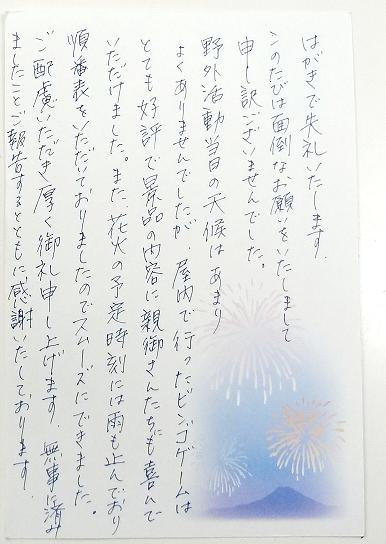 はがきで失礼いたします.
このたびは面倒なお願いをいたしまして
申し訳ございませんでした。
野外活動当日の天候はあまり
よくありませんでしたが、屋内で行ったビンゴゲームは
とても好評で景品の内容に親御さんたちも喜んで
いただけました。また、花火の予定時刻には雨も止んでおり
順番表をいただいておりましたのでスムーズにできました。
ご配慮いただき厚く御礼申し上げます. 無事に済み
ましたことご報告するとともに感謝いたしております.